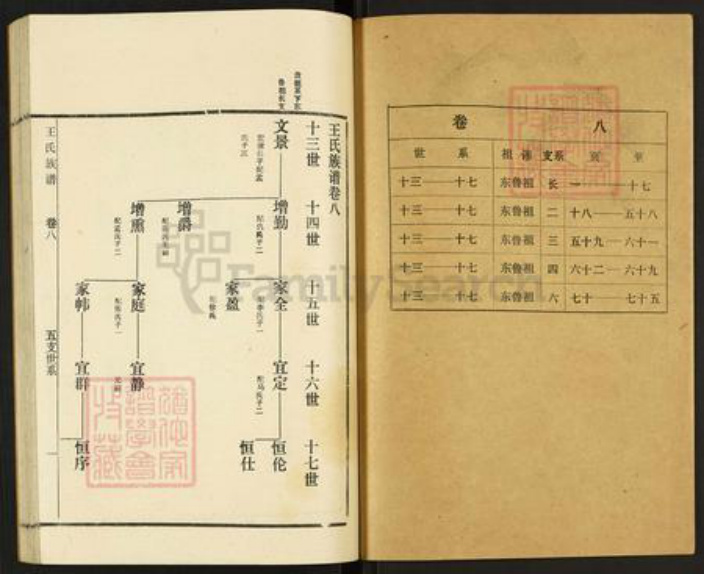 卷 八
世 系 祖 讳 支系 至
十三——十七 东鲁祖 长 一——十七
十三——十七 东鲁祖 二 十八——五十八
十三——十七 东鲁祖 三 五十九——六十一
十三——十七 东鲁祖 四 六十二——六十九
十三——十七 东鲁祖 六 七十——七十五
王氏族谱卷八
十三世 十四世 十五世 十六世 十七世
鲁祖长支
文景 增勤 家全 宜定 恒伦
配马氏子二
恒仕
家盈
配徐氏
增爵
增熏 家庭 宜静
配孟氏子二
配张氏子一
家帏 宜群 恒序
王氏族谱 卷八 五支世系 一
FamilySearch